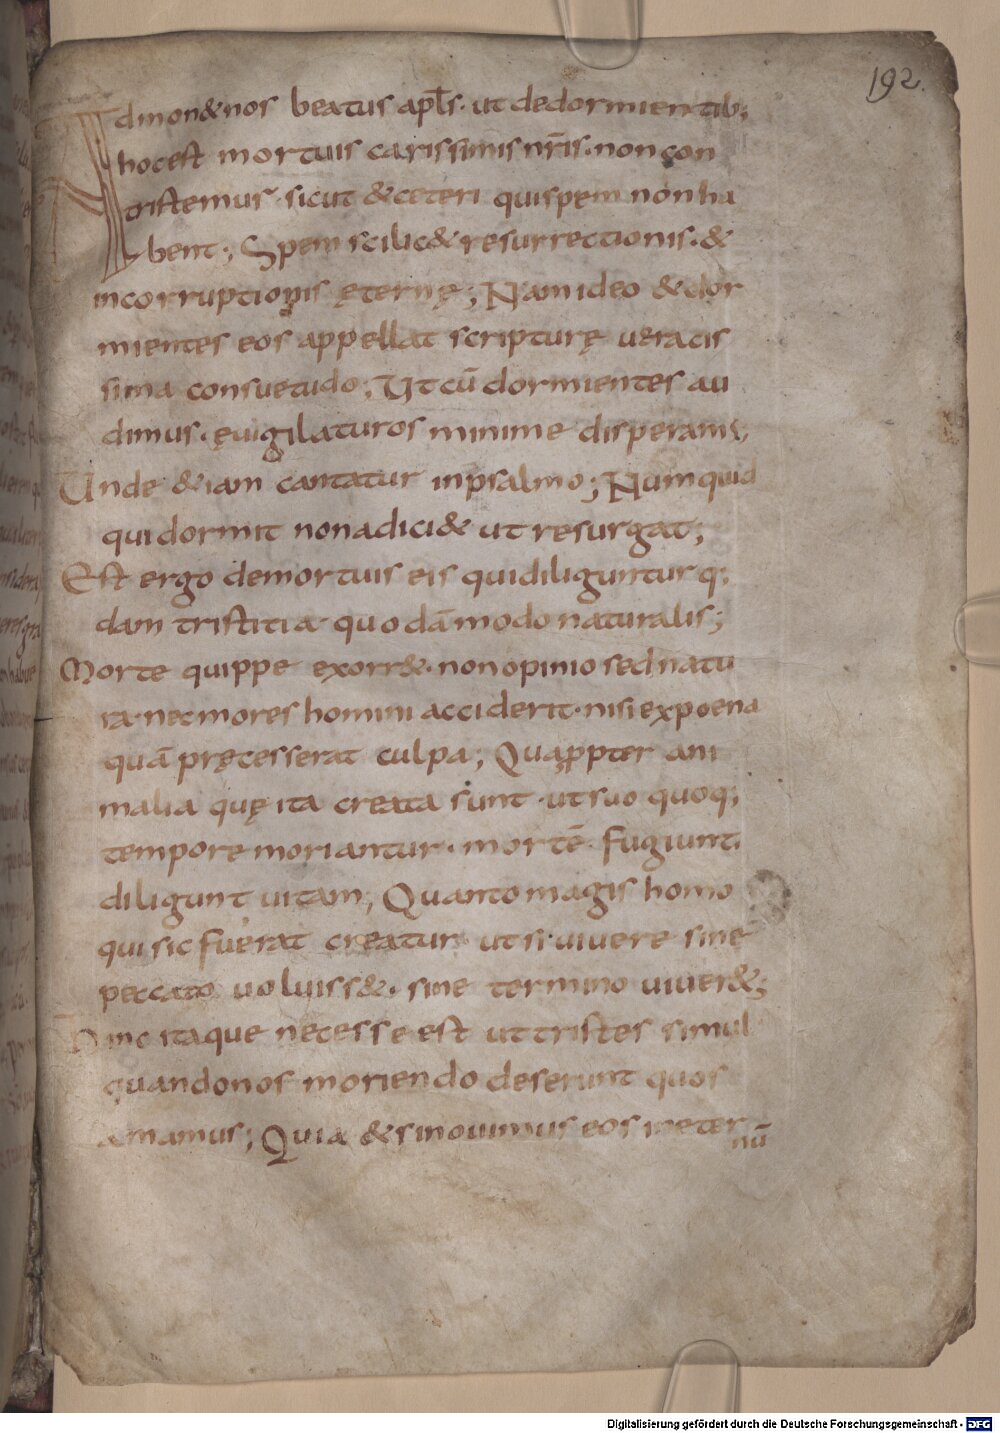 192.
Admon&nos beatus apl̄s· ut dedormientib;
hocest mortuis carissimis nr̄is· non con
tristemus· sicut &ceteri qui spem non ha
bent; Spem scilic& resurrectionis· &
incorruptionis ęternę; Nam ideo &dor
mientes eos appellat scripturę ueracis
sima consuetudo; Ut cū dormientes au
dimus· euigilaturos minime disperam;
Unde &iam cantatur inpsalmo; Numquid
qui dormit non adici& ut resurgat;
Est ergo demortuis eis quidiliguntur q;
dam tristitia quodāmodo naturalis;
Morte quippe exorr&· non opinio sed natu
ra· nec mores homini acciderit· nisi expoena
quā pręcesserat culpa; Quapp̱ter ani
malia quę ita creata sunt· ut suo quoq;
tempore moriantur· mortē fugiunt·
diligunt uitam; Quanto magis homo
qui sic fuerat creatur ut si uiuere sine
peccato uoluiss&· sine termino uiuer&;
Hinc itaque necesse est ut tristes simul
quando nos moriendo deserunt quos
amamus; Quia &sinouimus eos ineter
nū
Digitalisierung gefördert durch die Deutsche Forschungsgemeinschaft - DFG